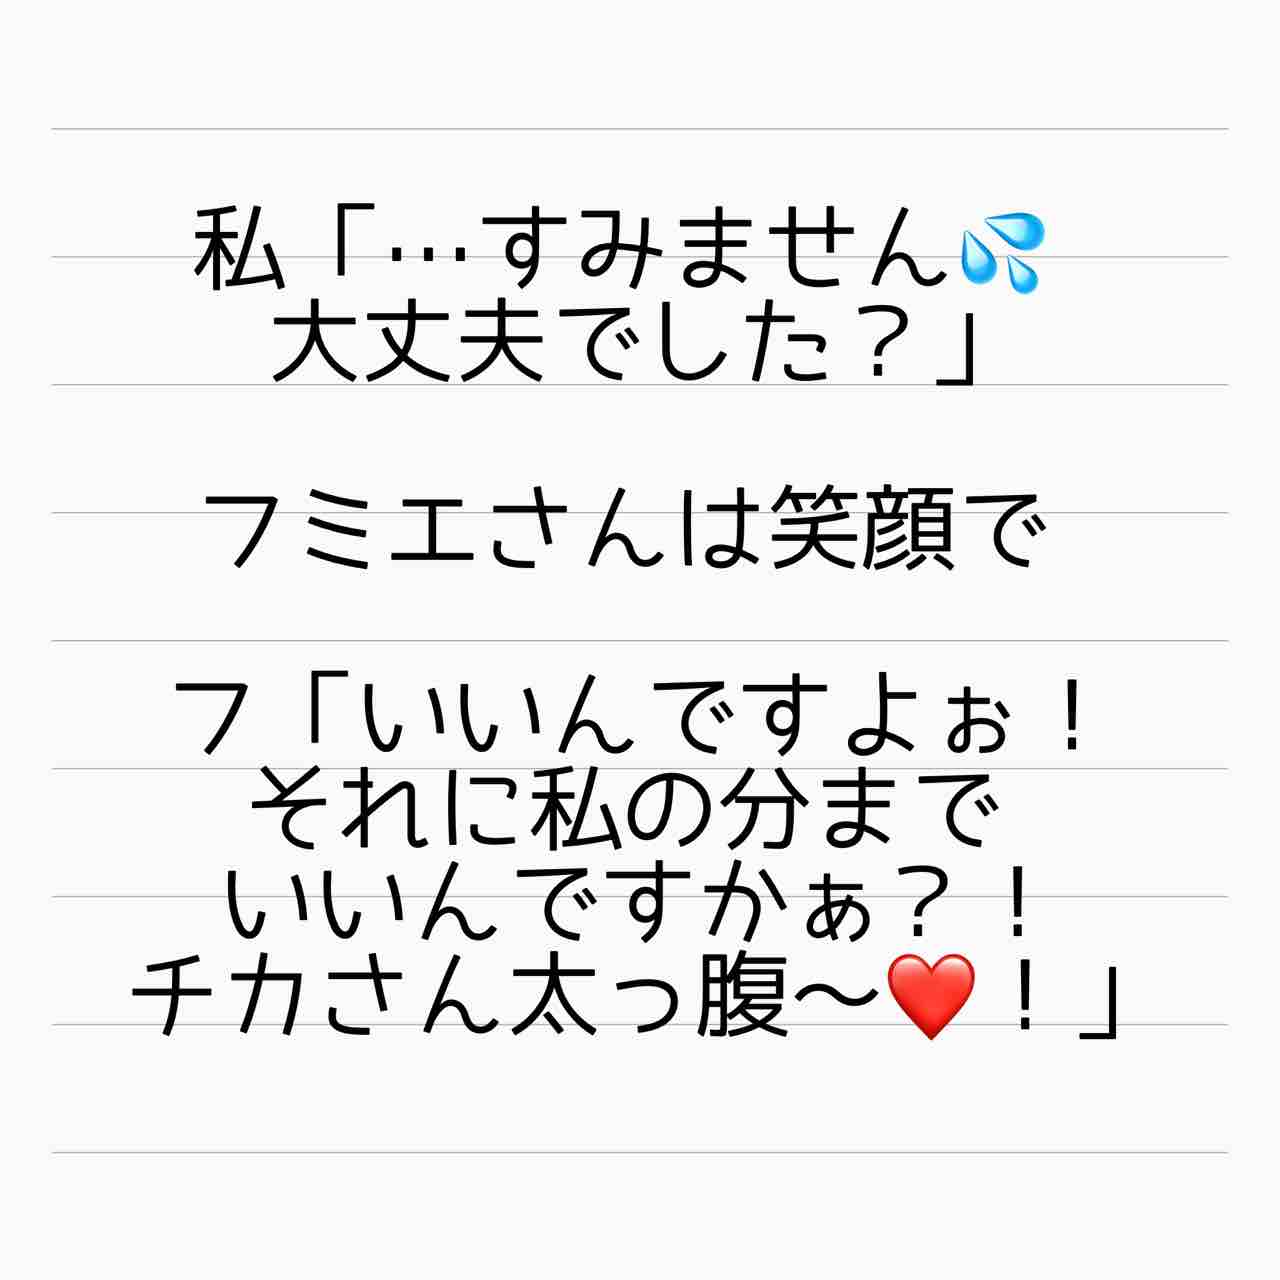 私「…すみません💦
大丈夫でした？」
フミエさんは笑顔で
フ「いいんですよぉ！
それに私の分まで
いいんですかぁ？！
チカさん太っ腹〜❤️！」